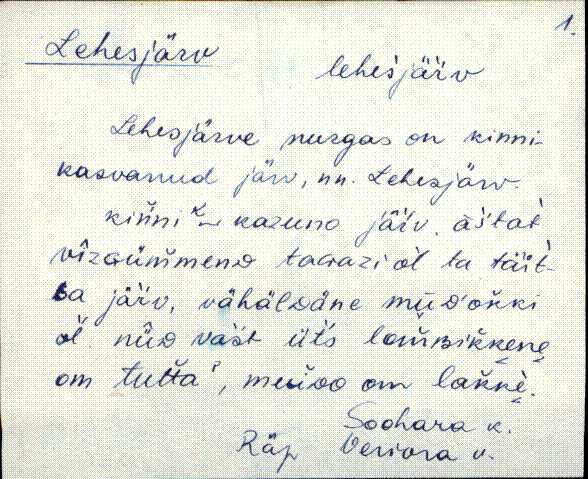 1.
Lehesjärv
lehesjäŕv
Lehesjärve nurgas on kinni-
kasvanud järv, nn. Lehesjärv.
kińni kazuno jäŕv. ästat
vîzɢümmend taɢazi ol ta täüt-
sa järv, vähäldäne
ol nüD väst üt's lomBikkene
om tutta', om lakkè.
Soohara k.
Räp Veriora v.